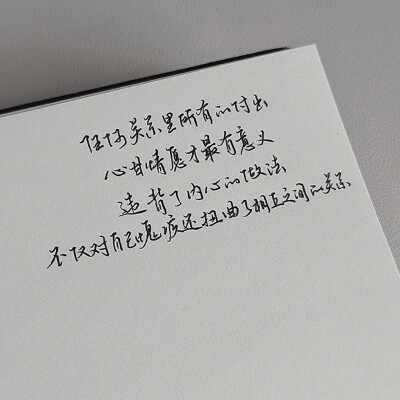 任何关系里所有的付出
心甘情愿才最有意义
违背了内心的做法
不仅对自己愧疚还扭曲了相互之间的关系